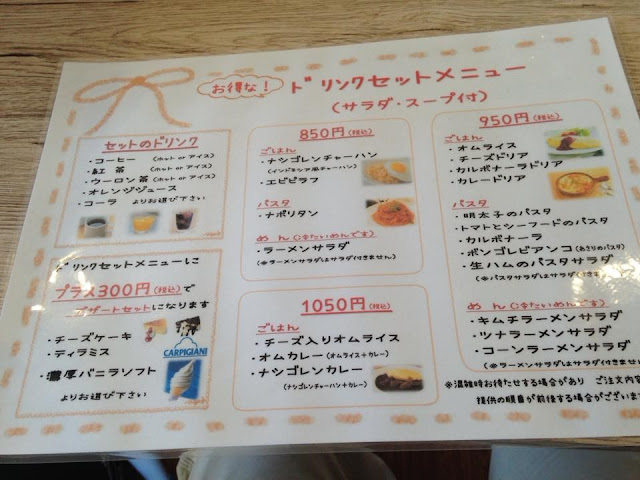 お得な!
ドリンクセットメニュー
(サラダ・スープ付)
セットのドリンク
・コーヒー (ホット or アイス)
・紅茶 (ホット or アイス)
・ウーロン茶 (ホット or アイス)
・オレンジジュース
・コーラ よりお選び下さい
ドリンクセットメニューに
プラス300円(税込)で
デザートセットになります
・チーズケーキ
・ティラミス
・濃厚バニラソフト
よりお選び下さい
CARPIGIANI
850円(税込)
ごはん
・ナシゴレンチャーハン
(インドネシア風チャーハン)
・エビピラフ
パスタ
・ナポリタン
めん(冷たいめんです)
・ラーメンサラダ
(※ラーメンサラダはサラダ付きません)
1050円(税込)
ごはん
・チーズ入りオムライス
・オムカレー(オムライス+カレー)
・ナシゴレンカレー
(ナシゴレンチャーハン+カレー)
950円(税込)
ごはん
・オムライス
・チーズドリア
・カルボナーラドリア
・カレードリア
パスタ
・明太子のパスタ
・トマトとシーフードのパスタ
・カルボナーラ
・ボンゴレビアンコ(あさりのパスタ)
・生ハムのパスタサラダ
(※パスタサラダはサラダ付きません)
めん(冷たいめんです)
・キムチラーメンサラダ
・ツナラーメンサラダ
・コーンラーメンサラダ
(※ラーメンサラダはサラダ付きません
※混雑時お待たせする場合があり ご注文内容
提供の順番が前後する場合がございます